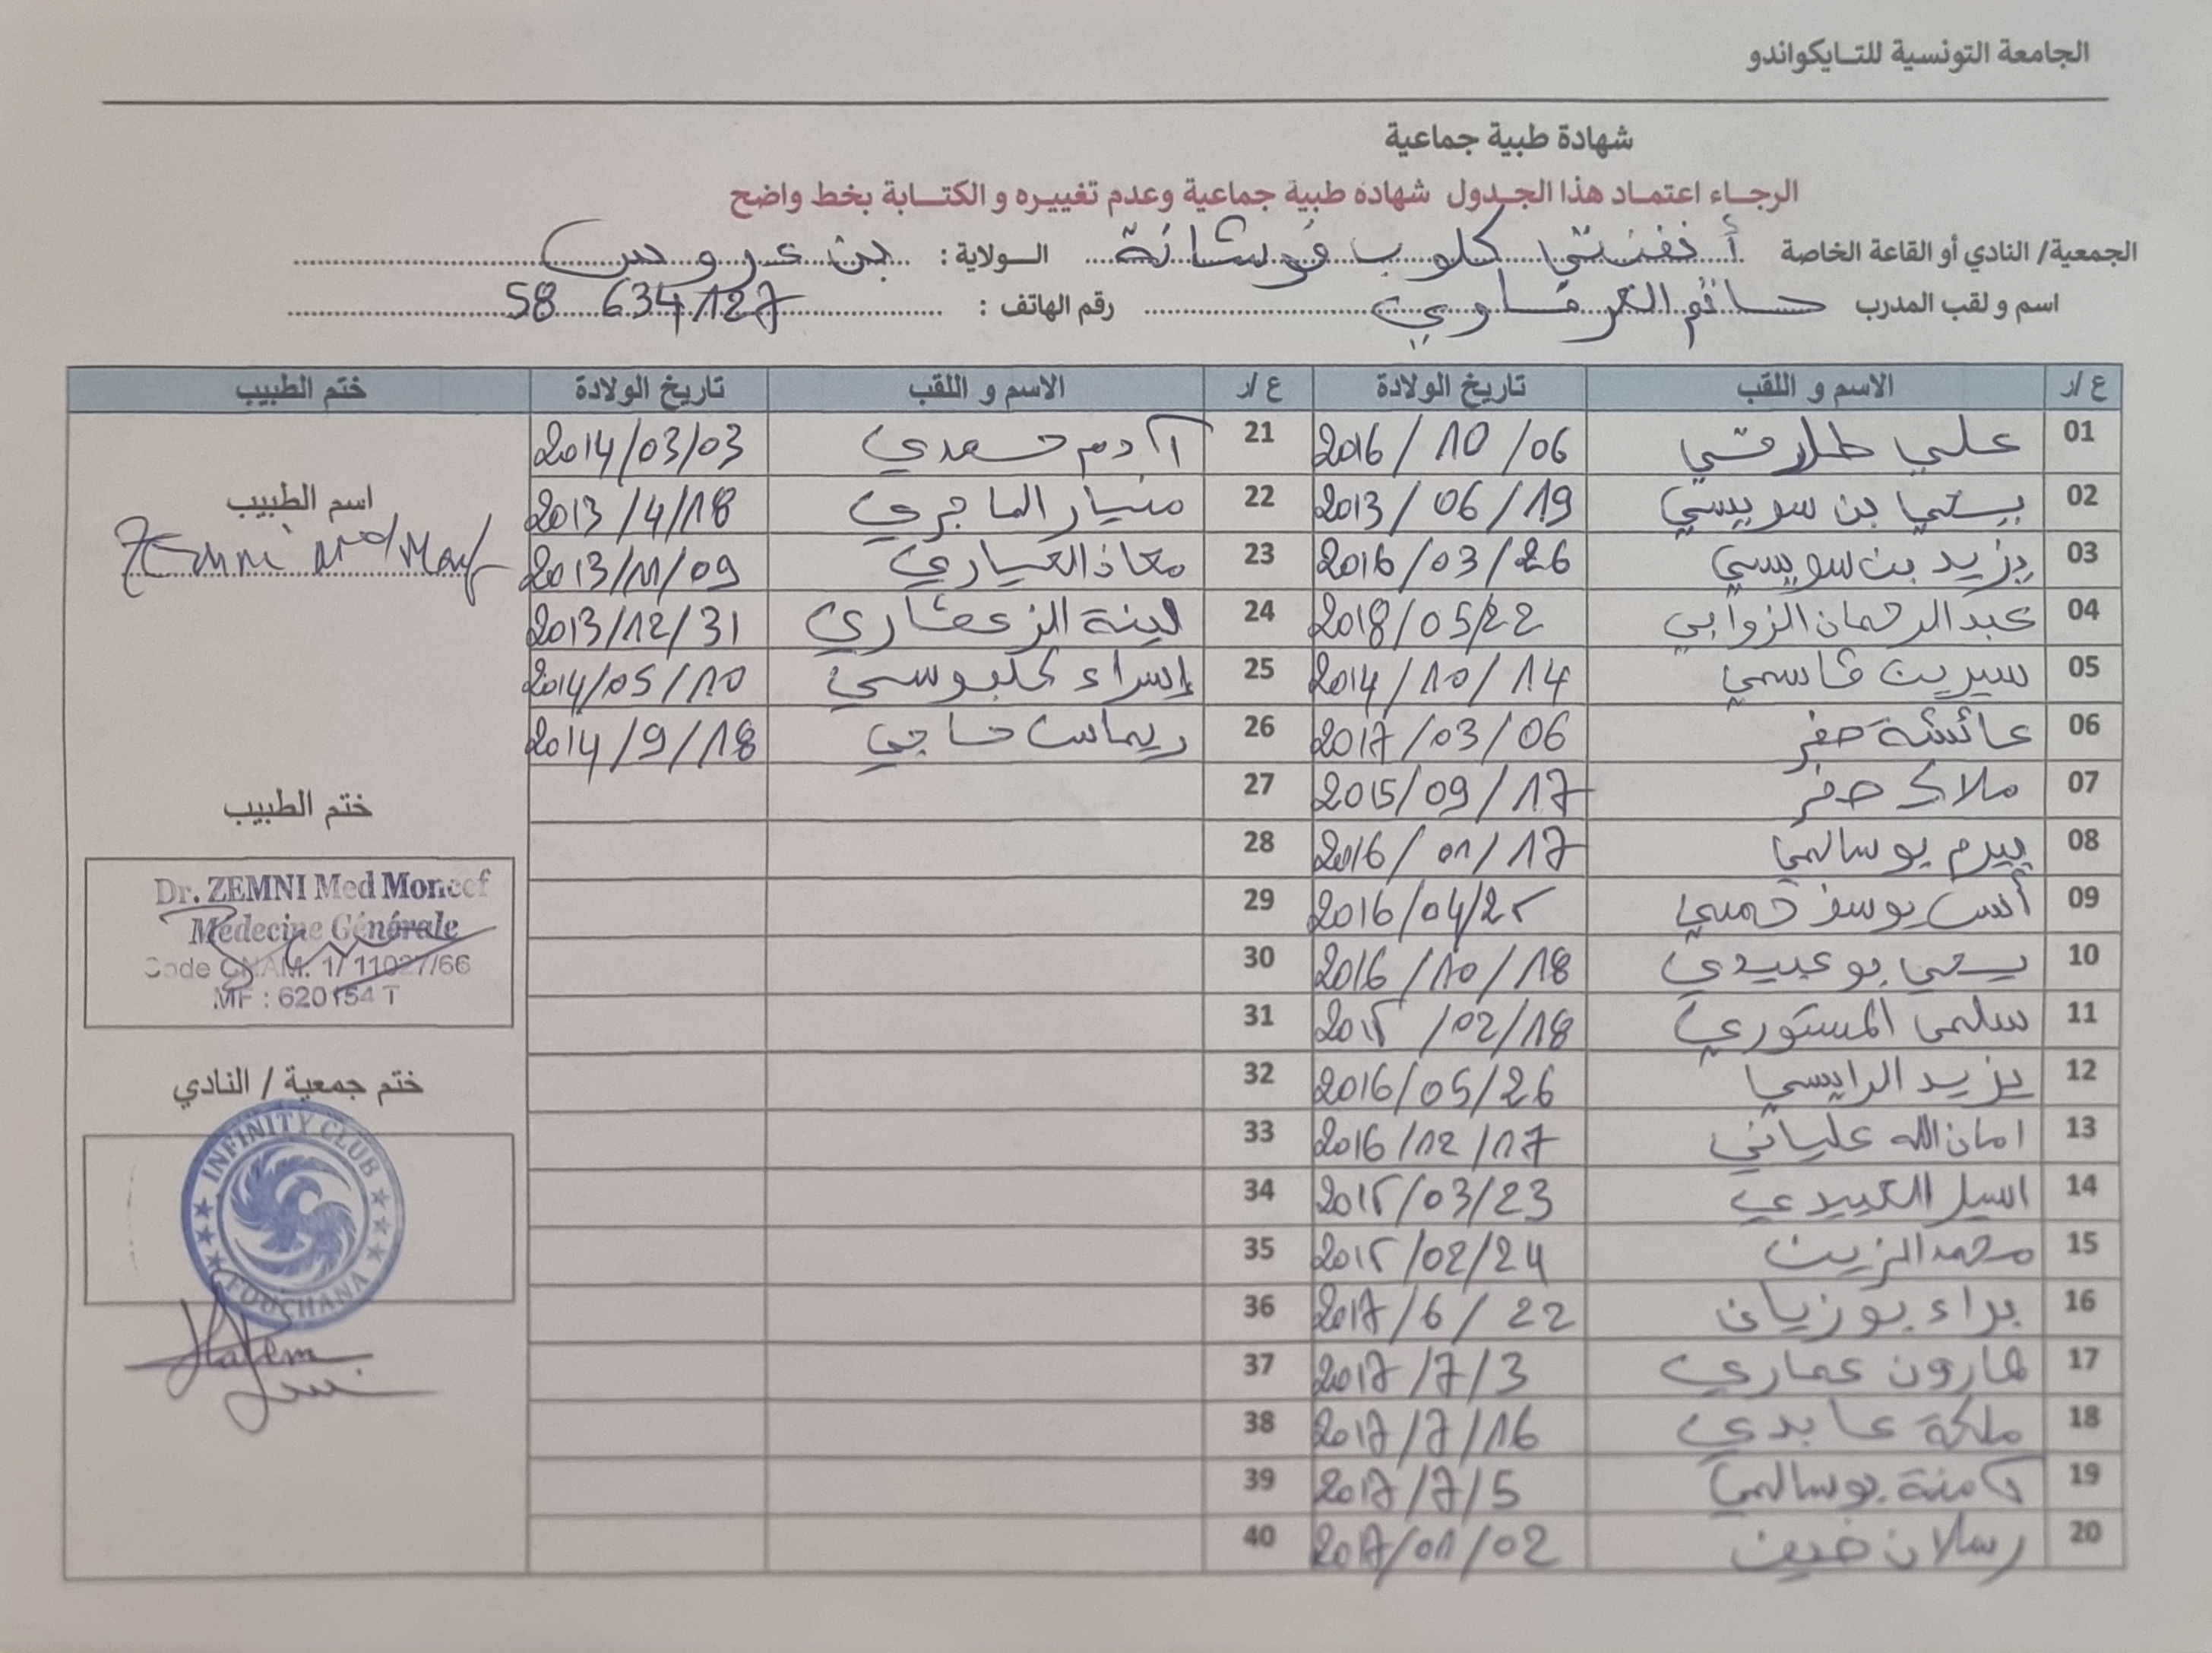 الجامعة التونسية للتايكواندو
شهادة طبية جماعية
الرجاء اعتماد هذا الجدول شهادة طبية جماعية وعدم تغييره و الكتابة بخط واضح
الجمعية/ النادي أو القاعة الخاصة أنفنتي كلوب فوشانة الولاية : بن عروس
اسم و لقب المدرب حاتم رقم الهاتف : 58 634 127
ع/ر الاسم و اللقب تاريخ الولادة ع/ر الاسم و اللقب تاريخ الولادة ختم الطبيب
01 علي 2016/10/06 21 آدم سعدي 2014/03/03
02 يحي بن سويسي 2013/06/19 22 منيار الماجري 2013/4/18
اسم الطبيب
Zemni Md Moncef
03 يزيد بن سويسي 2016/03/26 23 معاذ العياري 2013/11/09
04 عبد الرحمان الزوابي 2018/05/22 24 لينة 2013/12/31
05 سيرين قاسمي 2014/10/14 25 إسراء 2014/05/10
06 عائشة صفر 2017/03/06 26 ريماس حاجي 2014/9/18
07 ملاك صفر 2015/09/17 27
ختم الطبيب
08 بيرم بوسالمي 2016/01/17 28
09 أنس يوسف خميسي 2016/04/25 29
10 يحي بوعبيدي 2016/10/18 30
Dr. ZEMNI Med Moncef
Médecine Générale
Code CNAM: 1/ 11027/66
MF : 620154 T
11 سلمى المستوري 2015/02/18 31
12 يزيد الرايسي 2016/05/26 32
ختم جمعية / النادي
13 امان الله علياني 2016/12/17 33
14 اسيل العبيدي 2015/03/23 34
15 محمد الزين 2015/02/24 35
INFINITY CLUB
FOUCHANA
16 براء بوزيان 2017/6/22 36
17 هارون عماري 2017/7/3 37
Hatem
18 ملكة عابدي 2017/7/16 38
19 آمنة بوسالمي 2017/7/5 39
20 رسلان ضيف 2017/01/02 40